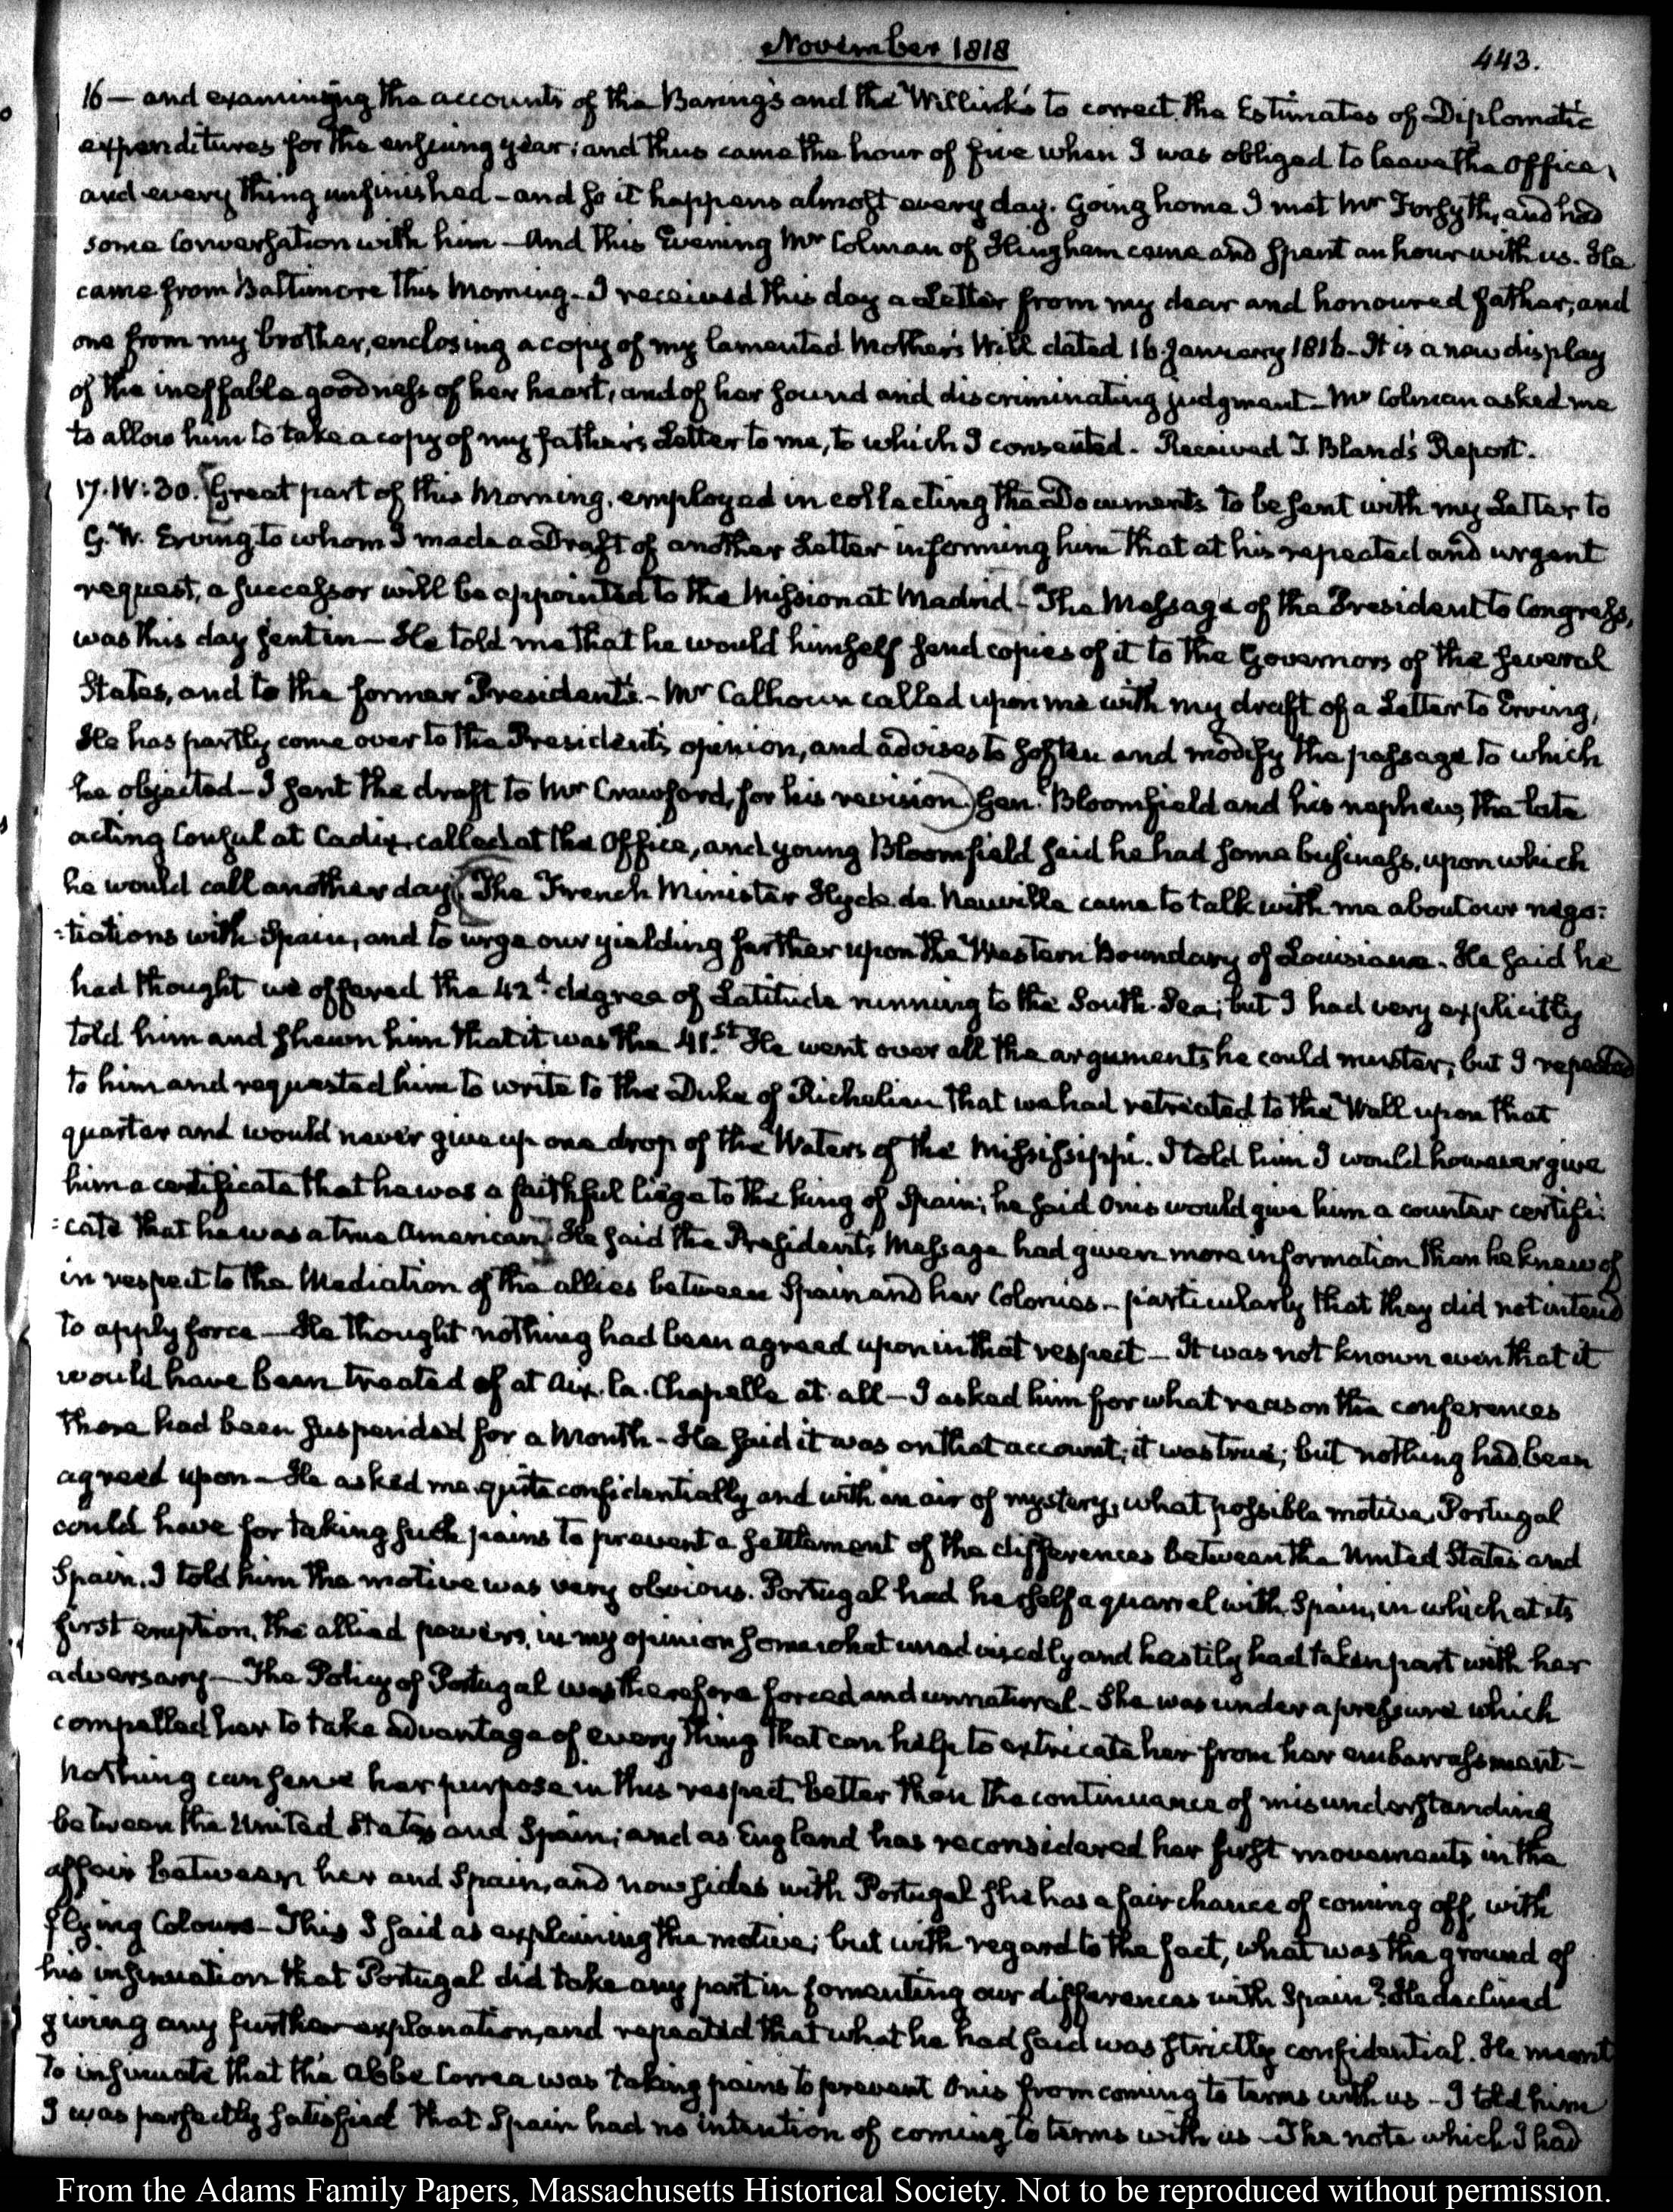 November 1818
443.
16 — and examining the accounts of the Baring's and the Willink's to correct the Estimates of Diplomatic
expenditures for the ensuing year; and thus came the hour of five when I was obliged to leave the office,
and every thing unfinished – and so it happens almost every day. Going home I met Mr Forsyth, and had
some Conversation with him – And this Evening Mr Colman of Hingham came and spent an hour with us. He
came from Baltimore this Morning – I received this day a Letter from my dear and honoured father, and
one from my brother, enclosing a copy of my lamented Mother's Will dated 16 January 1816 – It is a new display
of the ineffable goodness of her heart, and of her sound and discriminating judgment – Mr Colman asked me
to allow him to take a copy of my father's Letter to me, to which I consented. Received T. Bland's Report.
17. IV:30. Great part of this Morning, employed in collecting the Documents to be sent with my Letter to
G. W. Erving to whom I made a Draft of another Letter informing him that at his repeated and urgent
request, a successor will be appointed to the Mission at Madrid – The Message of the President to Congress,
was this day sent in – He told me that he would himself send copies of it to the Governors of the several
States, and to the former Presidents. – Mr Calhoun called upon me with my draft of a Letter to Erving,
He has partly come over to the President's opinion, and advises to soften and modify the passage to which
he objected – I sent the draft to Mr Crawford, for his revision) Genl. Bloomfield and his nephew, the late
acting Consul at Cadiz called at the Office, and young Bloomfield said he had some business, upon which
he would call another day. (The French Minister Hyde de Neuville came to talk with me about our nego:
:tiations with Spain, and to urge our yielding further upon the Western Boundary of Louisiana. He said he
had thought we offered the 42d. degree of Latitude running to the South Sea; but I had very explicitly
told him and shewn him that it was the 41.st He went over all the arguments he could muster; but I repeated
to him and requested him to write to the Duke of Richelieu that we had retreated to the Wall upon that
quarter and would never give up one drop of the Waters of the Mississippi. I told him I would however give
him a certificate that he was a faithful liege to the king of Spain; he said Onis would give him a counter certifi:
:cate that he was a true American. He said the President's Message had given more information than he knew of
in respect to the Mediation of the allies between Spain and her Colonies – particularly that they did not intend
to apply force – He thought nothing had been agreed upon in that respect – It was not known even that it
would have been treated of at Aix-la-Chapelle at all – I asked him for what reason the conferences
there had been suspended for a Month – He said it was on that account; it was true; but nothing had been
agreed upon – He asked me quite confidentially and with an air of mystery, what possible motive, Portugal
could have for taking such pains to prevent a settlement of the differences between the United States and
Spain. I told him the motive was very obvious. Portugal had herself a quarrel with Spain, in which at its
first eruption, the allied powers, in my opinion somewhat unadvisedly and hastily had taken part with her
adversary – The Policy of Portugal was therefore forced and unnatural – She was under a pressure which
compelled her to take advantage of every thing that can help to extricate her from her embarrassment –
Nothing can serve her purpose in this respect better than the continuance of misunderstanding
between the United States and Spain; and as England has reconsidered her first movements in the
affair between her and Spain, and now sides with Portugal she has a fair chance of coming off, with
flying Colours – This I said as explaining the motive; but with regard to the fact, what was the ground of
his insinuation that Portugal did take any part in fomenting our differences with Spain? He declined
giving any further explanation, and repeated that what he had said was strictly confidential. He meant
to insinuate that the Abbe Correa was taking pains to prevent Onis from coming to terms with us – I told him
I was perfectly satisfied that Spain had no intention of coming to terms with us – The note which I had
From the Adams Family Papers, Massachusetts Historical Society. Not to be reproduced without permission.